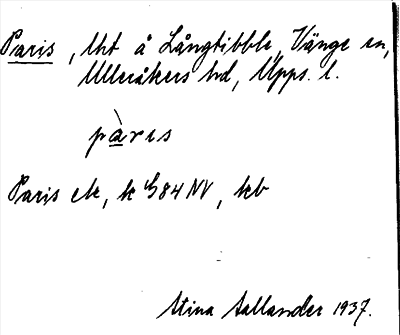 Paris, lht å Långtibble, Vänge sn,
Ulleråkers hd, Upps. l.
pàris
Paris ek, k G84 NV, kb
Stina Sallander 1937.